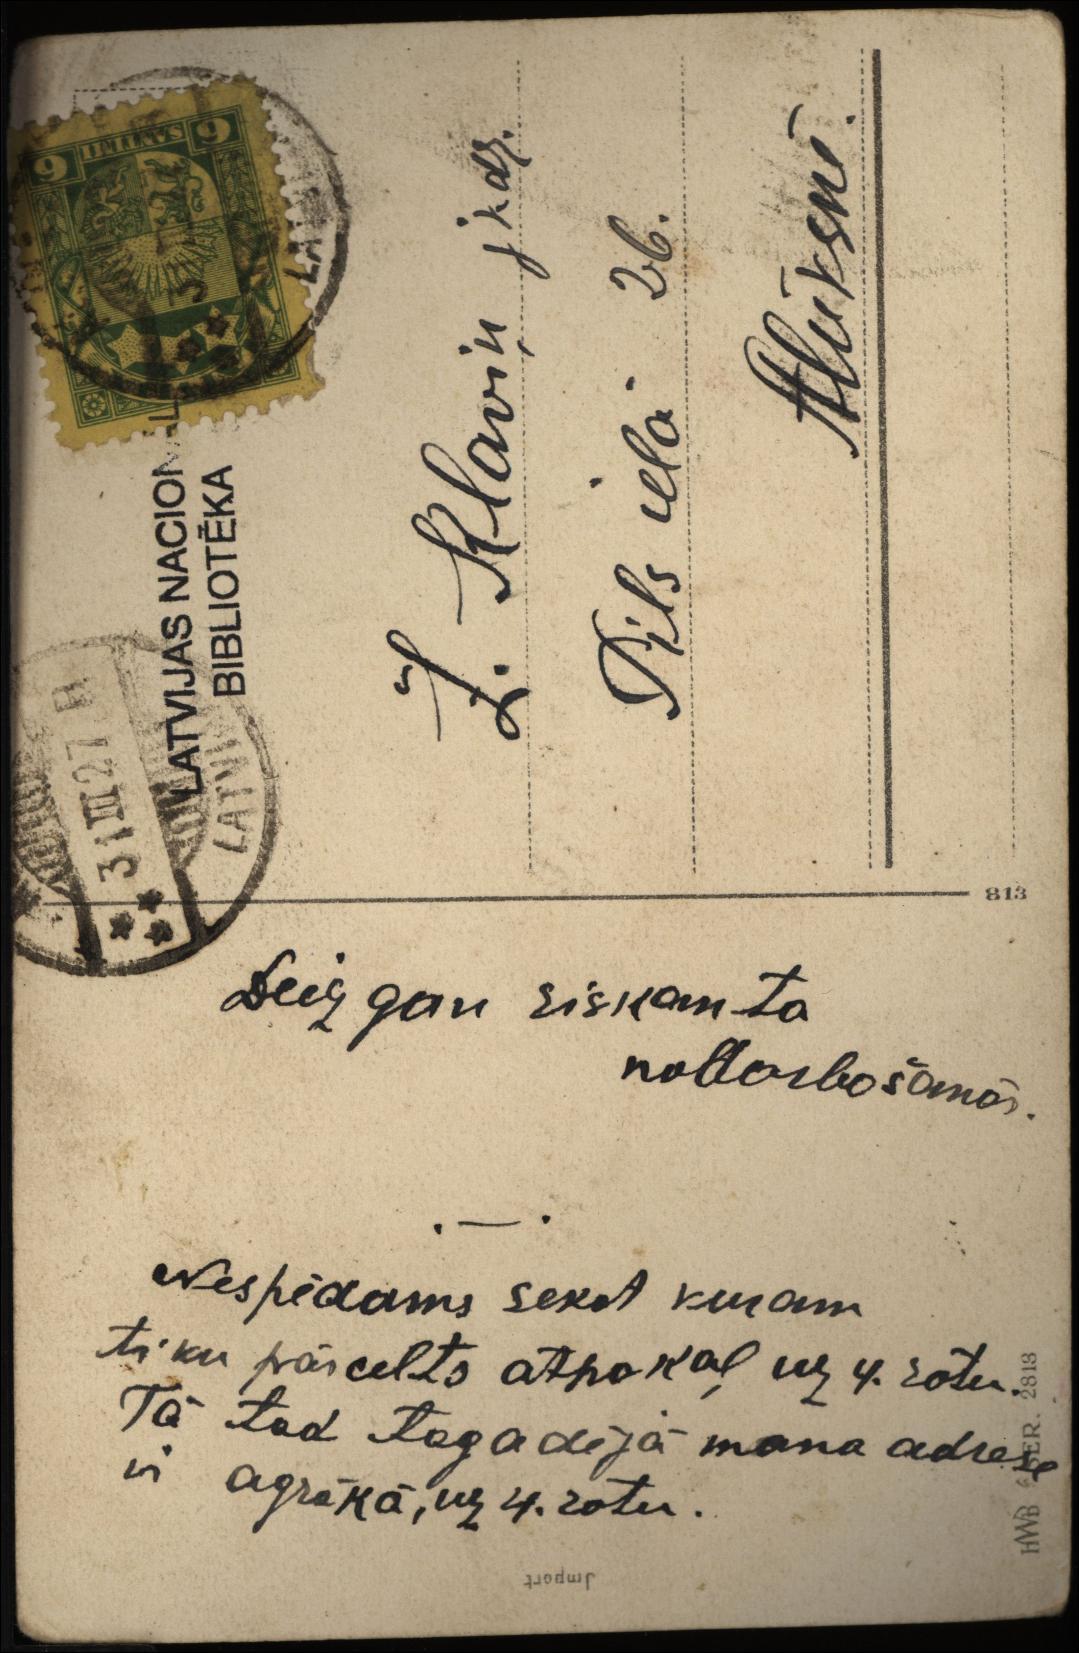 6 SANTIMI 6
LATVIJAS NACIONĀL
BIBLIOTĒKA
31 III 27 B
LATVI
Ž. Klaviņ jkdz.
Pils ielā 26.
Alūksnē.
813
Deiz gan riskanta
nodarbošanās.
Nespēdams sekot kuram
tiku pārcelts atpakaļ uz 4. rotu.
Tā tad tagadējā mana adrese
ir agrākā, uz 4. rotu.
HWB SER. 2818
Jmport